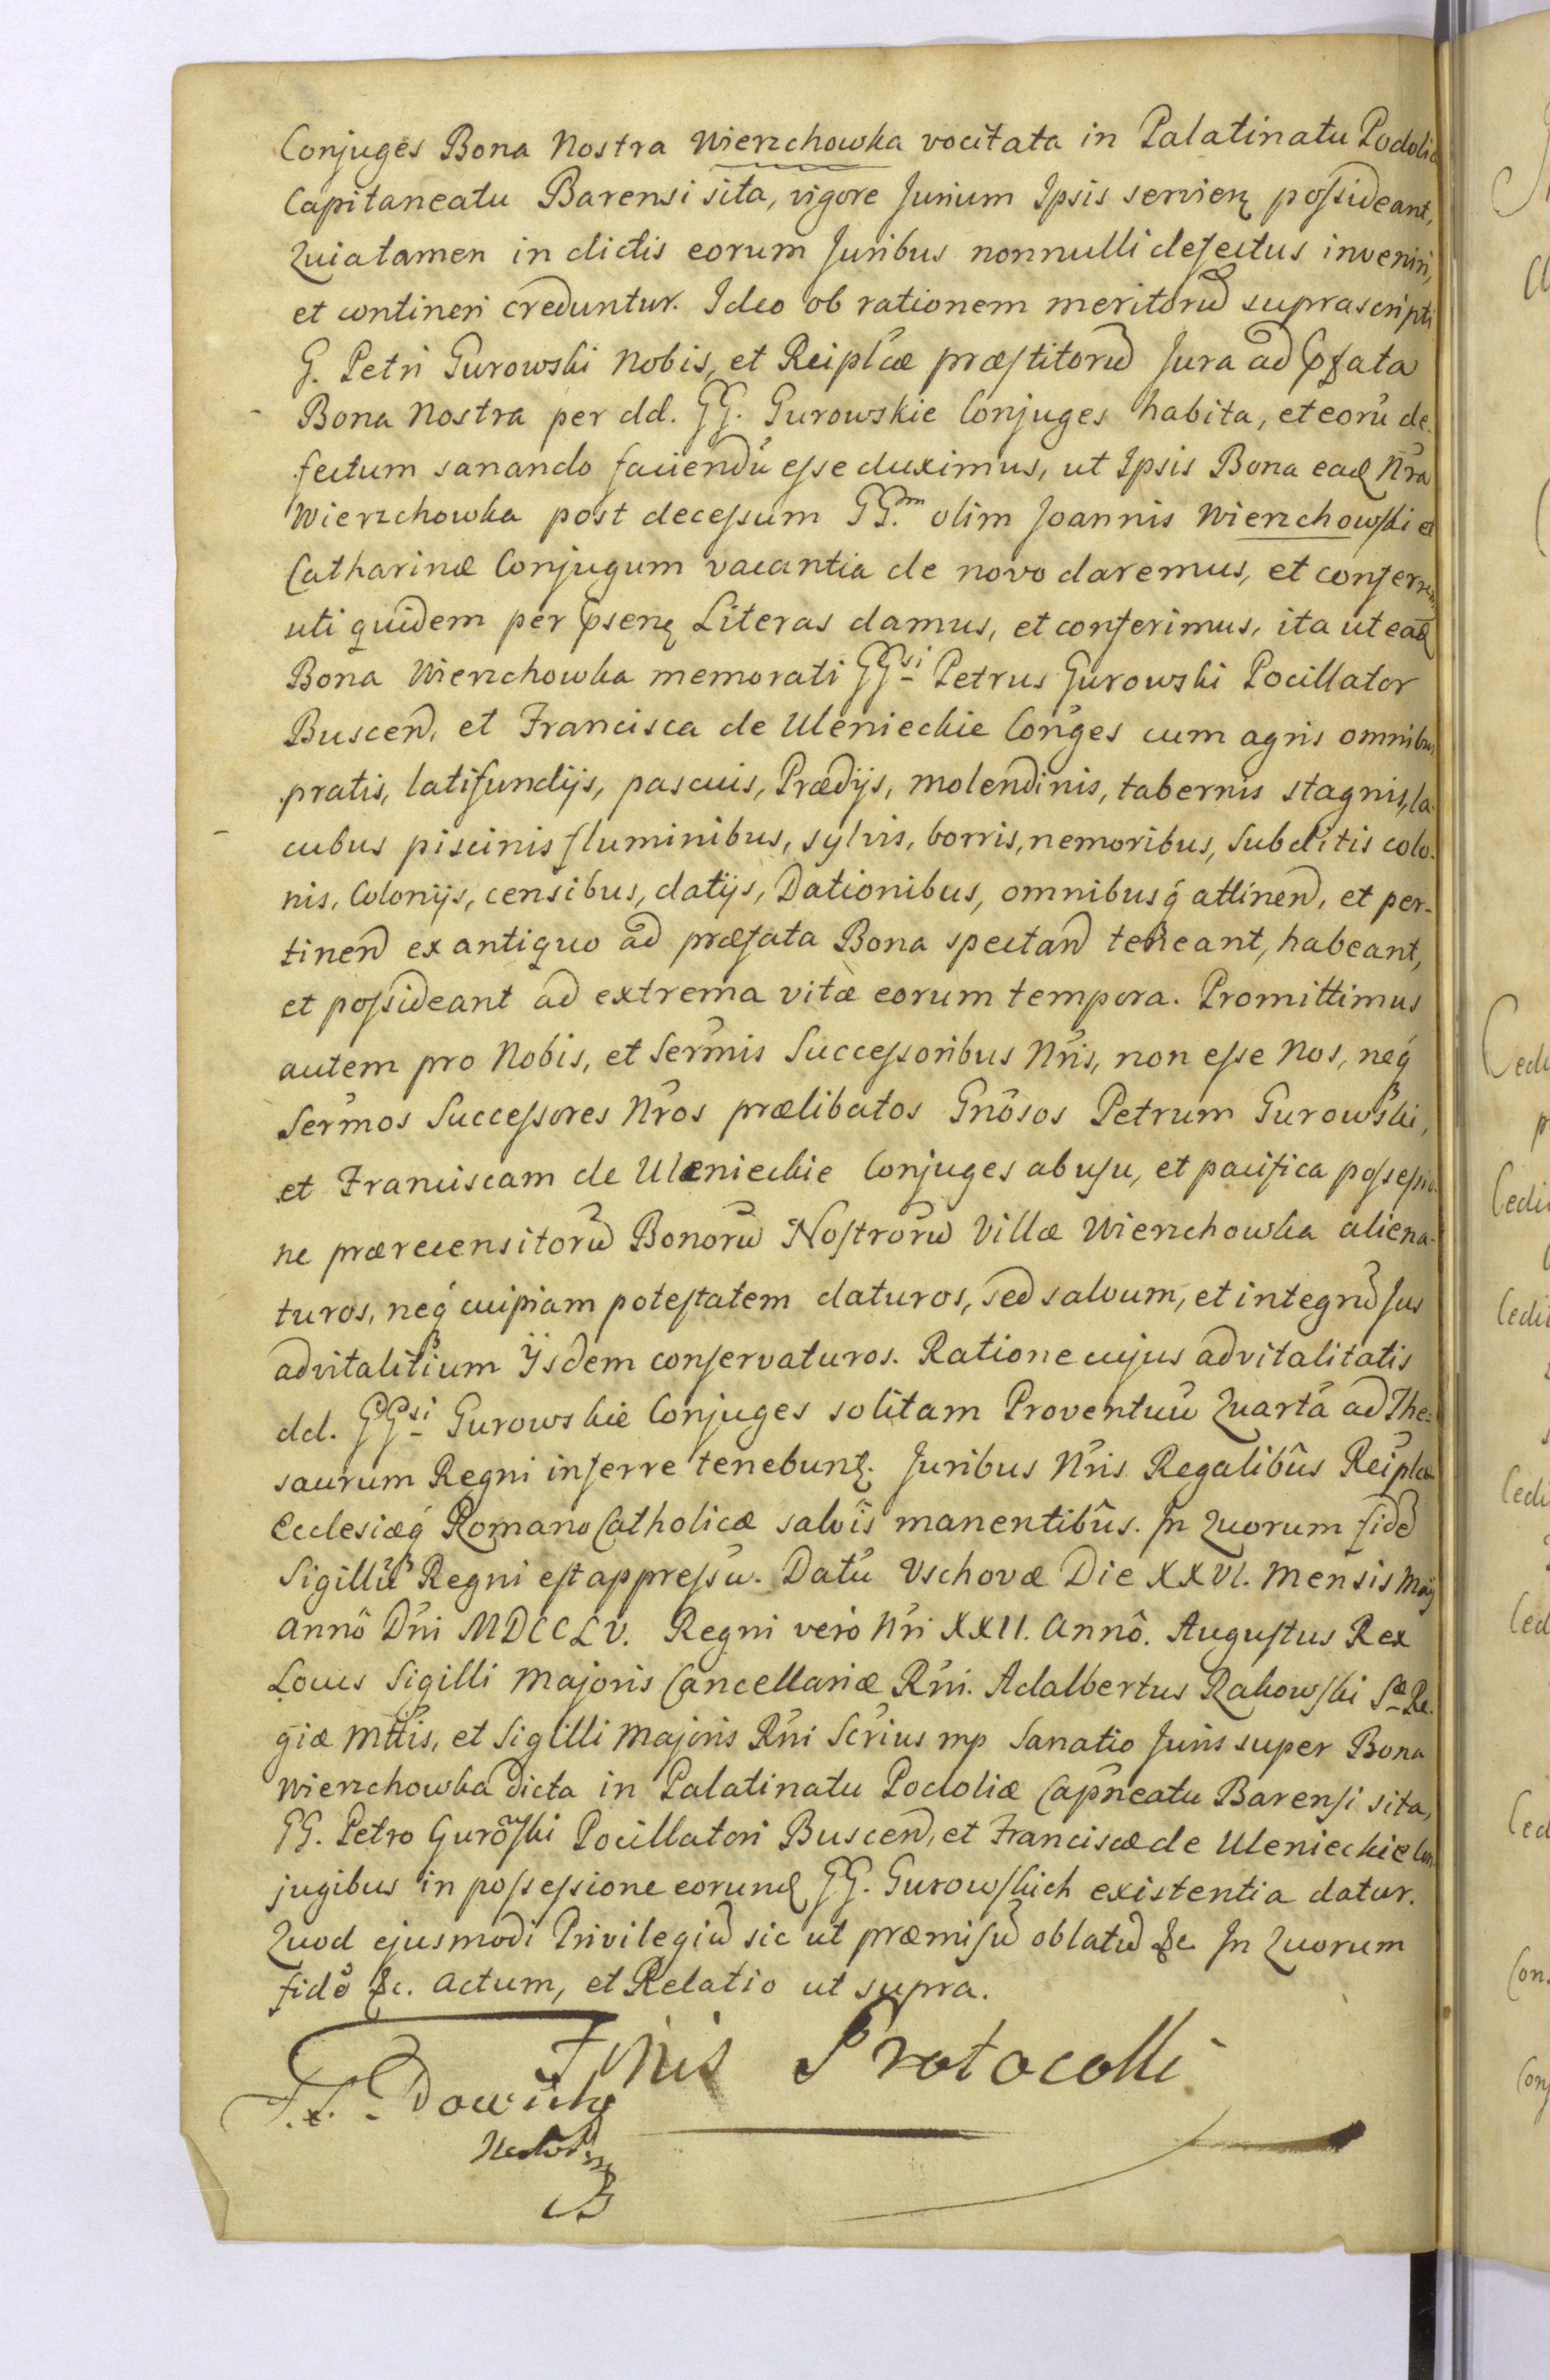 Conjuges Bona Nostra Wierzchowka vocitata in Palatinatu Podoliæ
Capitaneatu Barensi sita, vigore Jurium Ipsis servien possideant,
Quiatamen in dictis eorum Juribus nonnulli defectus inveniri,
et contineri creduntur. Ideo ob rationem meritorū suprascripti
G. Petri Gurowski Nobis, et Reiplcæ præstitorū Jura ad pfata
Bona Nostra per dd. GG. Gurowskie Conjuges habita, et eorū de-
fectum sanando faciendū esse duximus, ut Ipsis Bona ead Nra
Wierzchowka post decessum GG.m olim Joannis Wierzchowski et
Catharinæ Conjugum vacantia de novo daremus, et conferrem
uti quidem per psen Literas damus, et conferimus, ita ut ead
Bona Wierzchowka memorati GGsi Petrus Gurowski Pocillator
Buscen, et Francisca de Ulenieckie Conges cum agris omnibus
pratis, latifundijs, pascuis, Prædijs, molendinis, tabernis stagnis, la-
cubus piscinis fluminibus, sylvis, borris, nemoribus, Subditis colo-
nis, Colonijs, censibus, datijs, Dationibus, omnibusq attinen, et per-
tinen ex antiquo ad præfata Bona spectan teneant, habeant,
et possideant ad extrema vitæ eorum tempora. Promittimus
autem pro Nobis, et Sermis Successoribus Nris, non esse Nos, neq
Sermos Successores Nros prælibatos Gnosos Petrum Gurowski,
et Franciscam de Ulenieckie Conjuges ab usu, et pacifica possessio-
ne prærecensitorū Bonorū Nostrorū Villæ Wierzchowka aliena-
turos, neq cuipiam potestatem daturos, sed salvum, et integrū Jus
advitalitium Ÿsdem conservaturos. Ratione cujus advitalitatis
dd. GGsi Gurowskie Conjuges solitam Proventuū Quartā ad The-
saurum Regni inferre tenebunt. Juribus Nris Regalibûs Reiplcæ
Ecclesiæq Romano Catholicæ salvîs manentibûs. In Quorum fidē
Sigillū Regni est appressū. Datū Vschovæ Die XXVI. Mensis Maij
Annô Dni MDCCLV. Regni verò Nri XXII. Annô. Augustus Rex
Locus Sigilli Majoris Cancellariæ Rni. Adalbertus Rakowski Sæ Re-
giæ Mttis, et Sigilli Majoris Rni Scrius mp Sanatio Juris super Bona
Wierzchowka dicta in Palatinatu Podoliæ Capneatu Barensi sita,
GG. Petro Gurowski Pocillatori Buscen, et Franciscæ de Ulenieckie Con-
jugibus in possessione eorund GG. Gurowskich existentia datur.
Quod ejusmodi Privilegiū sic ut præmisū oblatū &c In Quorum
fidē &c. Actum, et Relatio ut supra.
Finis Protocolli